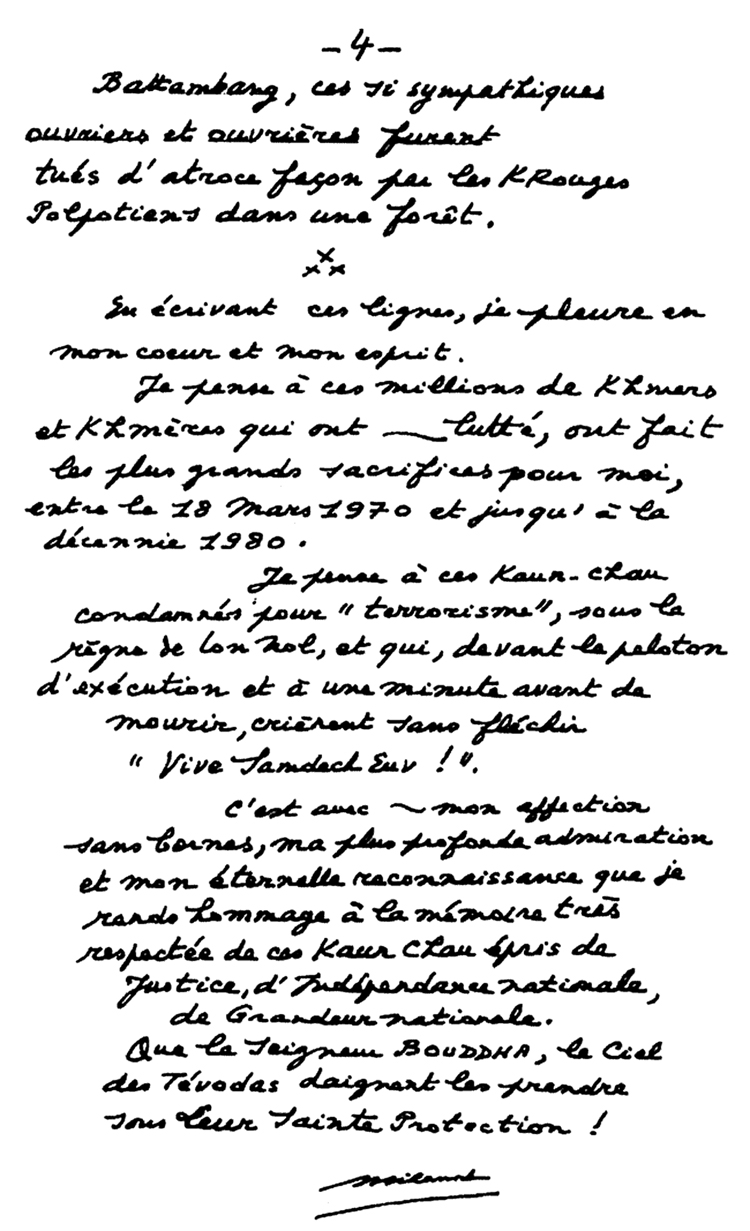 - 4 -
Battambang, ces si sympathiques
ouvriers et ouvrières furent
tués d'atroce façon par les KRouges
Polpotiens dans une forêt.
x
x x
En écrivant ces lignes, je pleure en
mon coeur et mon esprit.
Je pense à ces millions de Khmers
et Khmères qui ont lutté, ont fait
les plus grands sacrifices pour moi,
entre le 18 Mars 1970 et jusqu'à la
décennie 1980.
Je pense à ces Kaun-Chau
condamnés pour "terrorisme", sous le
règne de Lon Nol, et qui, devant le peloton
d'exécution et à une minute avant de
mourir, crièrent sans fléchir
"Vive Samdech Euv !".
C'est avec mon affection
sans bornes, ma plus profonde admiration
et mon éternelle reconnaissance que je
rends hommage à la mémoire très
respectée de ces Kaun Chau épris de
Justice, d'Indépendance nationale,
de Grandeur nationale.
Que le Seigneur BOUDDHA, le Ciel
des Tévodas daignent les prendre
sous leur Sainte Protection !